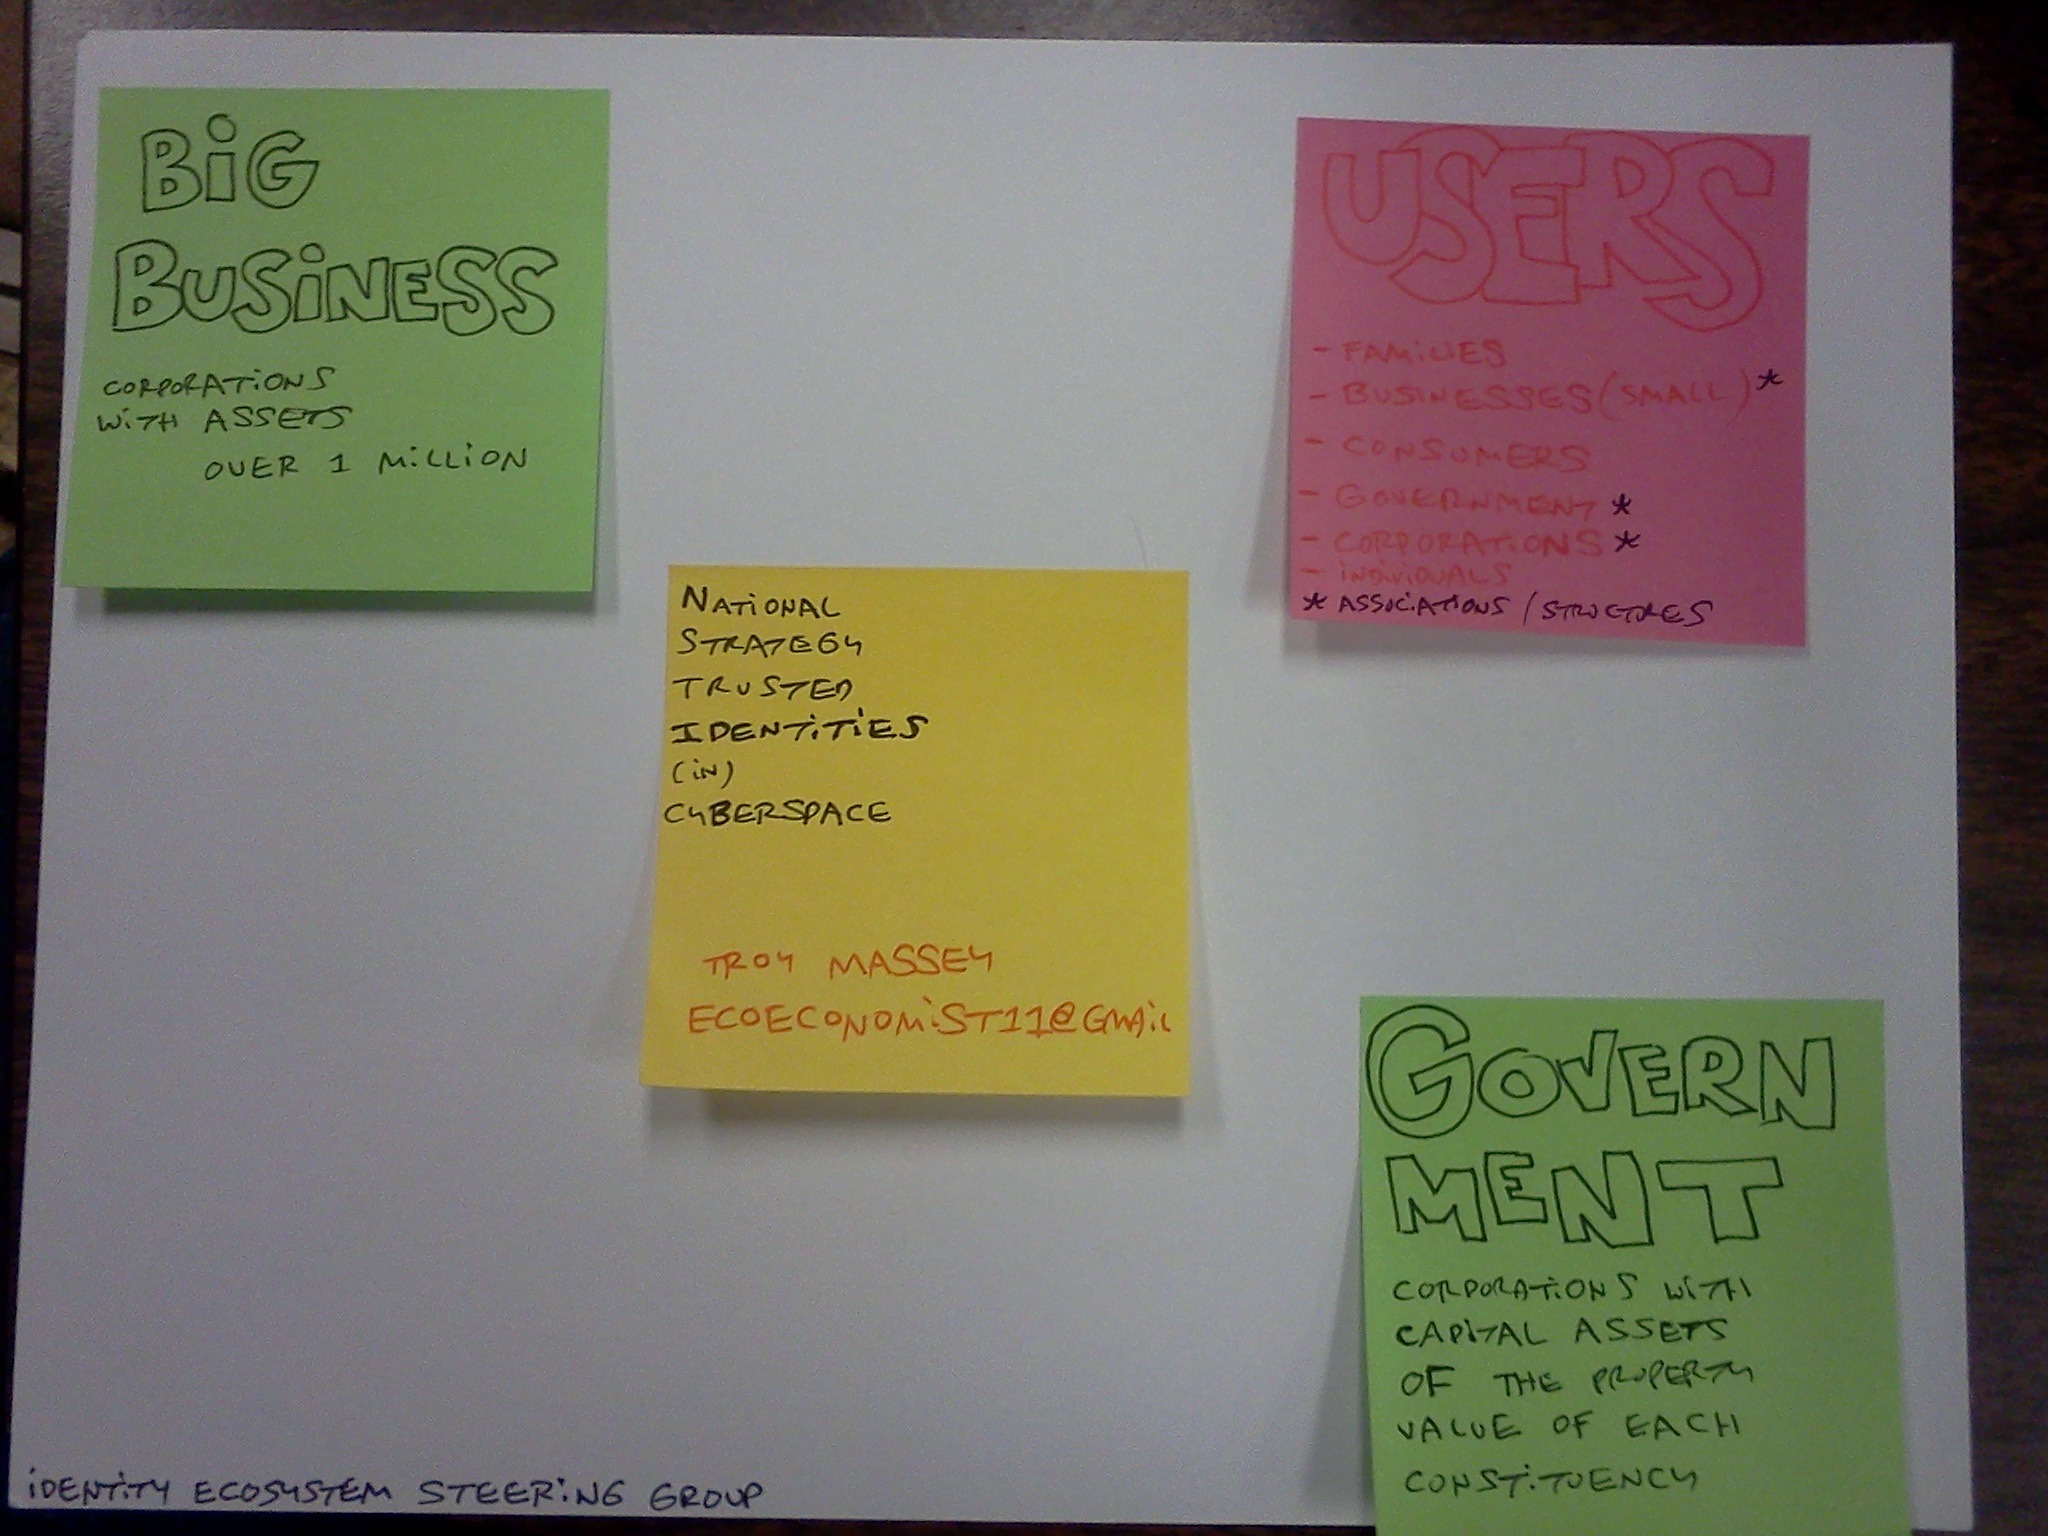 BiG
BUSiNESS
CORPORATiONS
WiTH ASSETS
OVER 1 MiLLiON
USERS
- FAMiLiES
- BUSiNESSES (SMALL) *
- CONSUMERS
- GOVERNMENT *
- CORPORATIONS *
- iNDiViDUALS
* ASSOCiATiONS / STRUCTURES
NATiONAL
STRATEGY
TRUSTED
IDENTiTiES
(iN)
CYBERSPACE
TROY MASSEY
ECOECONOMiST11@GMAiL
GOVERN
MENT
CORPORATiONS WiTH
CAPiTAL ASSETS
OF THE PROPERTY
VALUE OF EACH
CONSTiTUENCY
iDENTiTY ECOSYSTEM STEERiNG GROUP